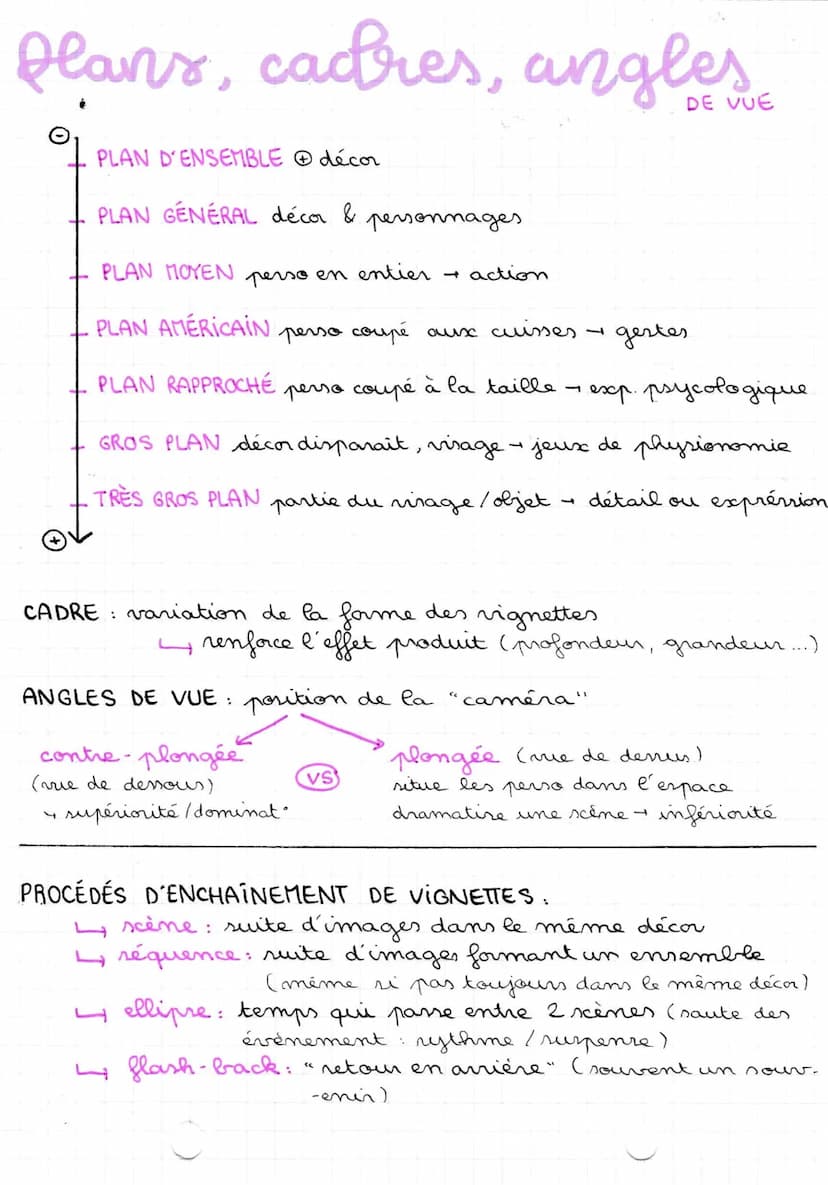 Plans, cadres, angles
DE VUE
⊖
PLAN D'ENSEMBLE ⊕ décor
PLAN GÉNÉRAL décor & personnages
PLAN MOYEN perso en entier → action
PLAN AMÉRICAIN perso coupé aux cuisses → gestes
PLAN RAPPROCHÉ perso coupé à la taille → exp. psycologique
GROS PLAN décor disparait, visage → jeux de physionomie
TRÈS GROS PLAN partie du visage / objet → détail ou expréssion
⊕
CADRE : variation de la forme des vignettes
↳ renforce l'effet produit (profondeur, grandeur...)
ANGLES DE VUE : position de la "caméra"
contre-plongée VS plongée (vue de dessus)
(vue de dessous) situe les perso dans l'espace
↳ supériorité / dominat° dramatise une scène → infériorité
PROCÉDÉS D'ENCHAÎNEMENT DE VIGNETTES :
↳ scène : suite d'images dans le même décor
↳ séquence : suite d'images formant un ensemble
(même si pas toujours dans le même décor)
↳ ellipse : temps qui passe entre 2 scènes (saute des
évènement : rythme / suspense)
↳ flash-back : "retour en arrière" (souvent un souv-
-enir)